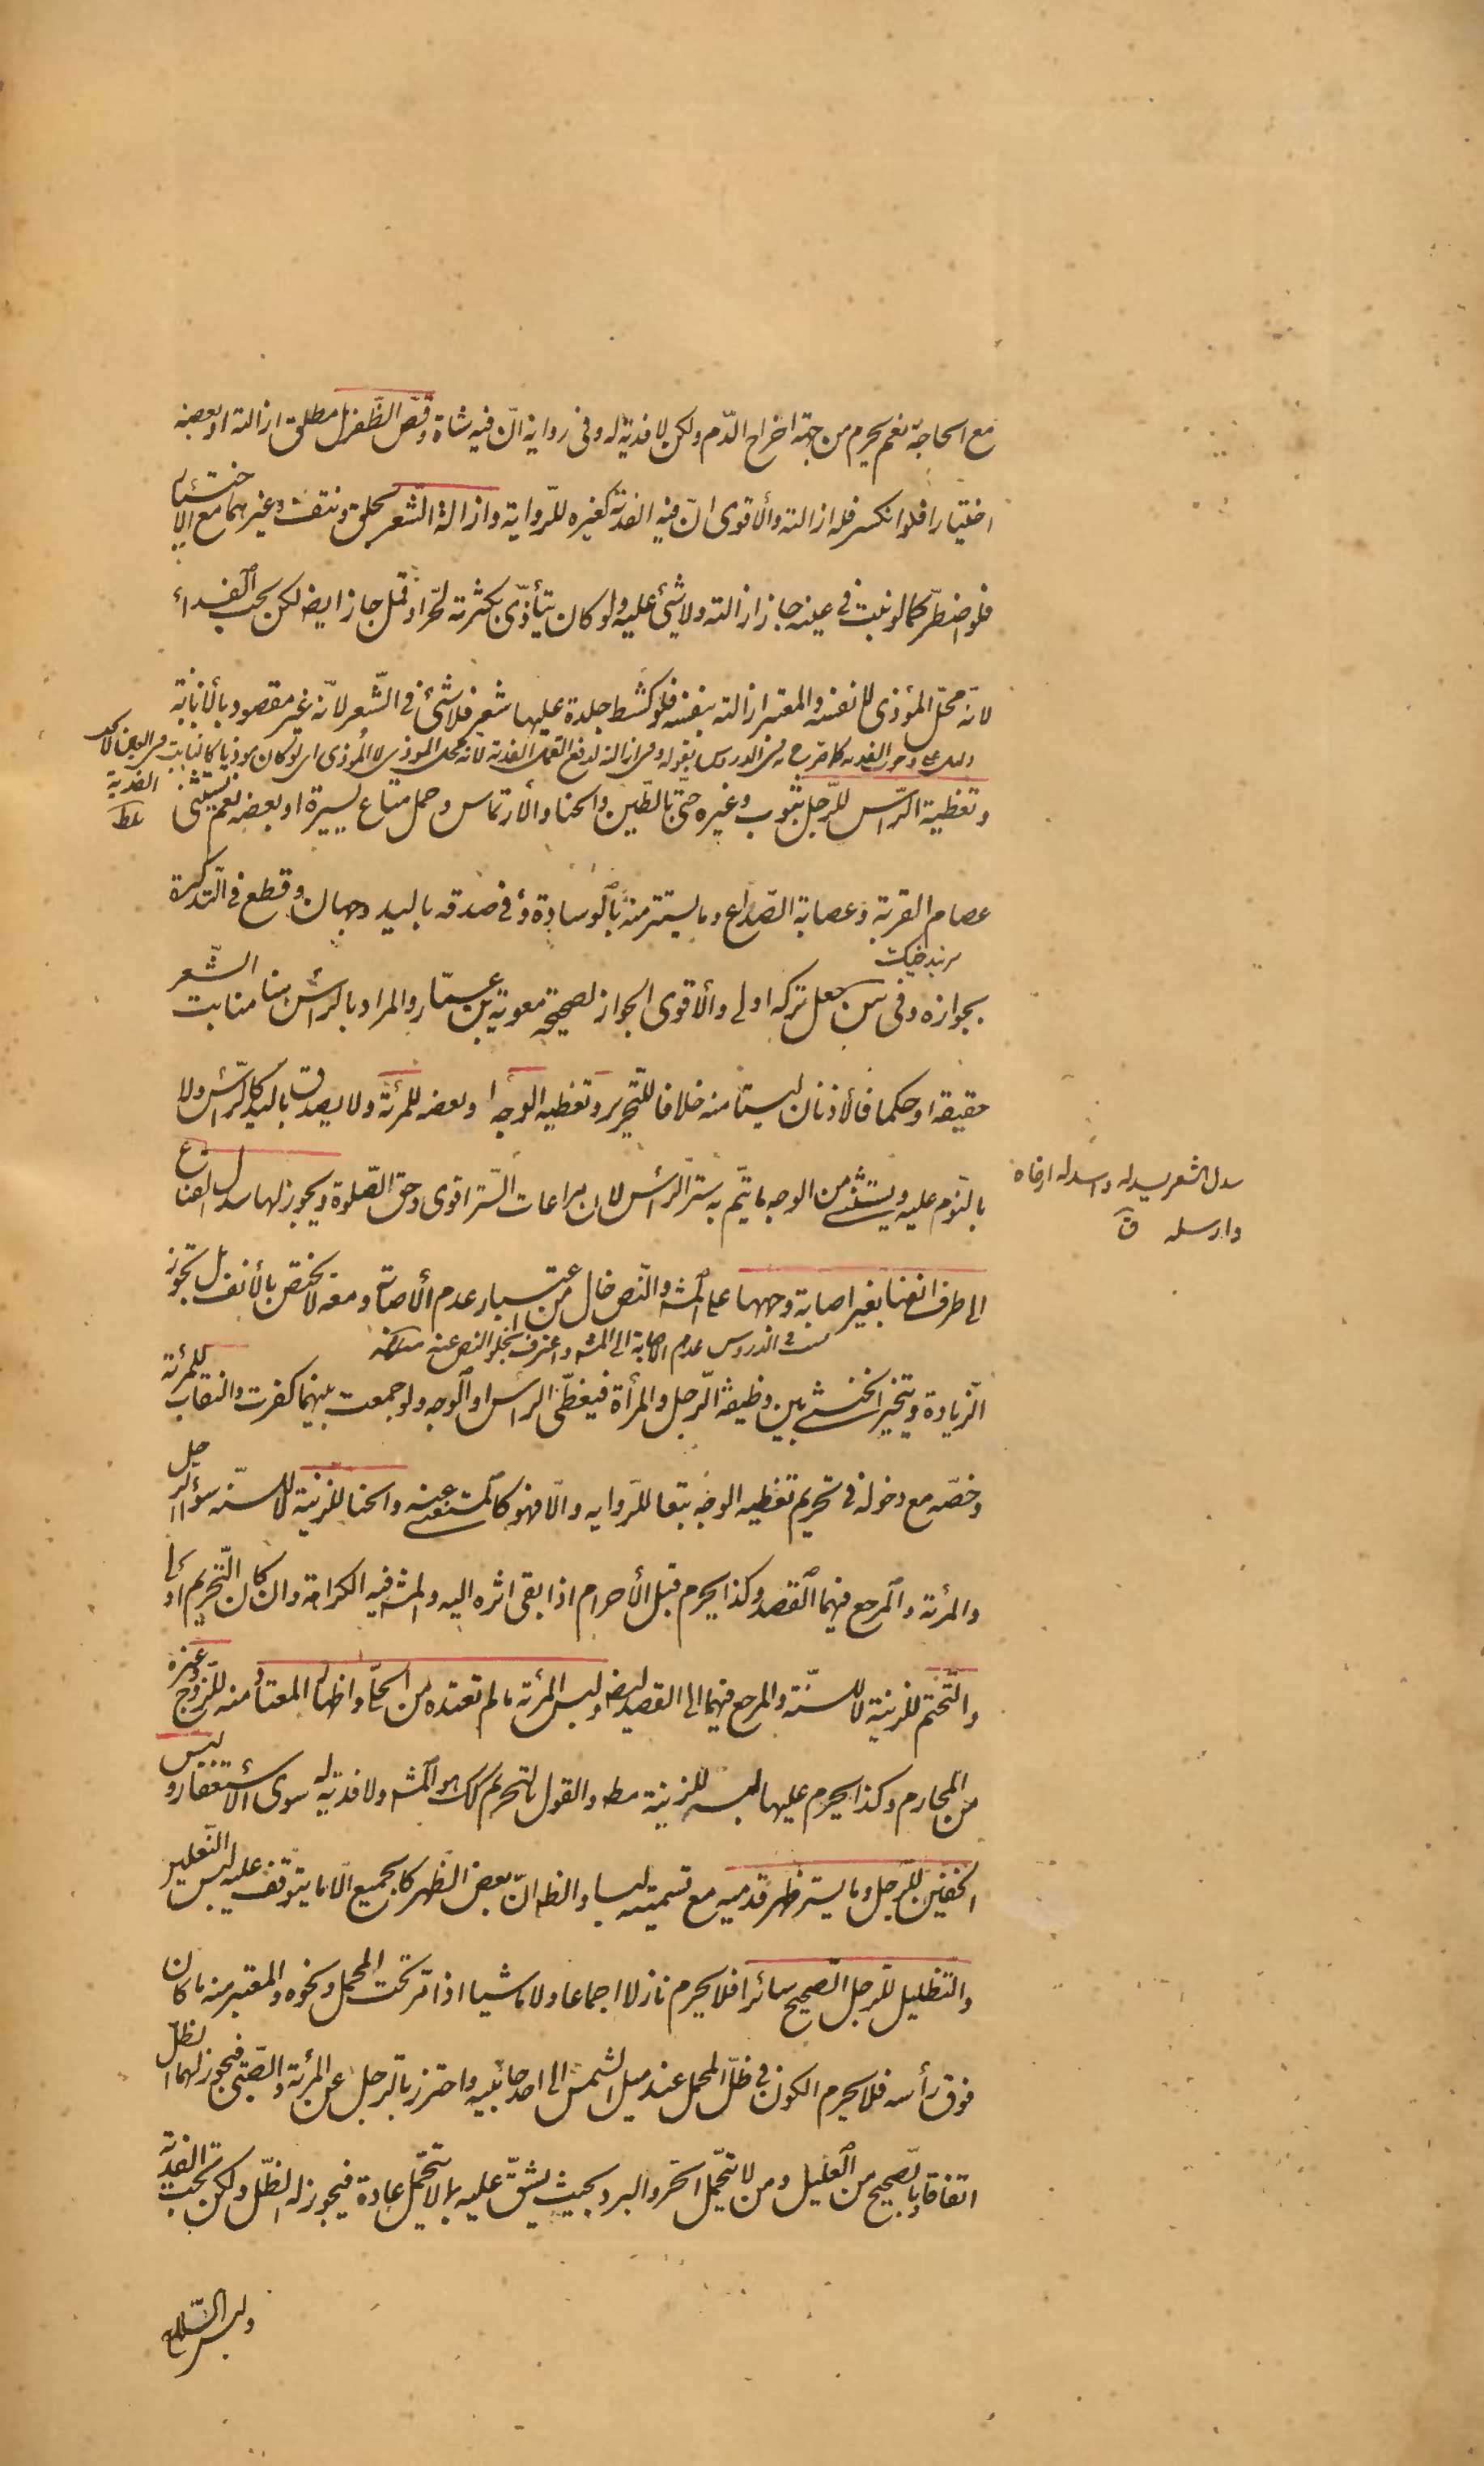 مع الحاجة نعم يحرم من جهة اخراج الدّم ولكن لا فدية له وفى رواية انّ فيه شاة وقصّ الظّفر بل مطلق ازالته او بعضه
اختيارا فلو انكسر فله ازالته والأقوى انّ فيه الفدية كغيره للرّواية وازالة الشّعر بحلق ونتف وغيرهما مع الاختيار
فلو اضطرّ كما لو نبت فى عينه جاز ازالته ولا شئ عليه ولو كان يتأذّى بكثرته لحرّ او قمل جاز ايضا لكن يجب الفداء
لانّه محلّ المؤذى لا نفسه والمعتبر ازالته بنفسه فلو كشط جلدة عليها شعر فلا شئ فى الشّعر لأنّه غير مقصود بالأبانة
وتغطية الرّاس للرّجل بثوب وغيره حتّى بالطّين والحنا والأرتماس وحمل متاع يسيرة او بعضه نعم يستثنى
عصام القربة وعصابة الصّداع وما يستتر منه بالوسادة وفى صدقه باليد وجهان وقطع فى التذكرة
سربند خيك
بجوازه وفى س جعل تركه اولى والأقوى الجواز لصحيحة معوية بن عمّار والمراد بالرأس هنا منابت الشّعر
حقيقة او حكما فالأذنان ليستا منه خلافا للتّحرير وتغطية الوجه او بعضه للمرئة ولا يصدق باليد كالرّأس ولا
بالنّوم عليه ويستثنى من الوجه ما يتمّ به ستر الرّأس لان مراعات السّتر اقوى وحق الصّلوة ويجوز لها سدل القناع
سدل الشعر يسدله واسدله ارخاه
وارسله ق
الى طرف انفها بغير اصابة وجهها على المشه والنّص خال من اعتبار عدم الأصابة ومعه لا يختص بالأنف بل تجوز
نسب فى الدروس عدم الاصابة الى المشه واعترف بخلو النص عنه منه
الزّيادة ويتخيّر الخنثى بين وظيفة الرّجل والمرأة فيغطّى الرأس او الوجه ولو جمعت بينهما كفرت والنقاب للمرئة
وخصّه مع دخوله فى تحريم تغطية الوجه تبعا للرّواية والّا فهو كالمستغنى عنه والحنا للزينة لا للسنّة سواء الرجل
والمرئة والمرجع فيهما القصد وكذا يحرم قبل الأحرام اذا بقى اثره اليه والمشه فيه الكراهة وان كان التّحريم اولى
والتّختم للزينة لا للسنّة والمرجع فيهما الى القصد ايضا ولبس المرئة ما لم تعتده من الحلّى واظهار المعتاد منه للزّوج وغيره
من المحارم وكذا يحرم عليها لبسه للزينة مطه والقول بالتحريم كك هو المشه ولا فدية له سوى الأستغفار ولبس
الخفين للرّجل وما يستر ظهر قدميه مع تسميته لبسا والظه انّ بعض الظهر كالجميع الّا ما يتوقف عليه لبس النّعلين
والتظليل للرّجل الصّحيح سائرا فلا يحرم نازلا اجماعا ولا ماشيا اذا مرّ تحت المحمل ونحوه والمعتبر منه ما كان
فوق رأسه فلا يحرم الكون فى ظلّ المحمل عند ميل الشمس الى احد جانبيه واحترز بالرجل عن المرئة والصّبى فيجوز لهما الظلّ
اتفاقا وبالصّحيح من العليل ومن لا يتحمّل الحرّ والبرد بحيث يشقّ عليه بما لا يتحمّل عادة فيجوز له الظلّ ولكن تجب الفدية
ولبس السّلاح